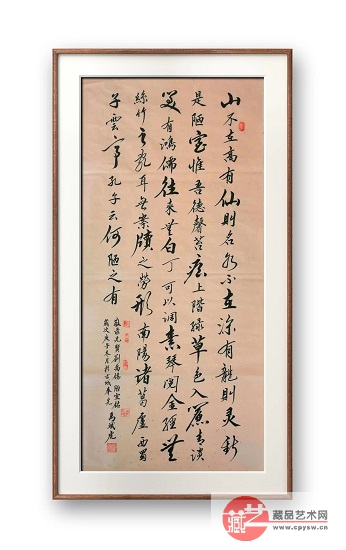 山不在高有仙則名水不在深有龍則灵斯
是陋室惟吾德馨苔痕上階綠草色入簾青談
笑有鴻儒往来無白丁可以调素琴閱金經無
絲竹之亂耳無案牘之勞形南陽諸葛廬西蜀
子雲亭孔子云何陋之有
敬录先賢劉禹錫陋室铭
歲次庚子年
藏艺
藏品艺术网
www.cpysw.cn